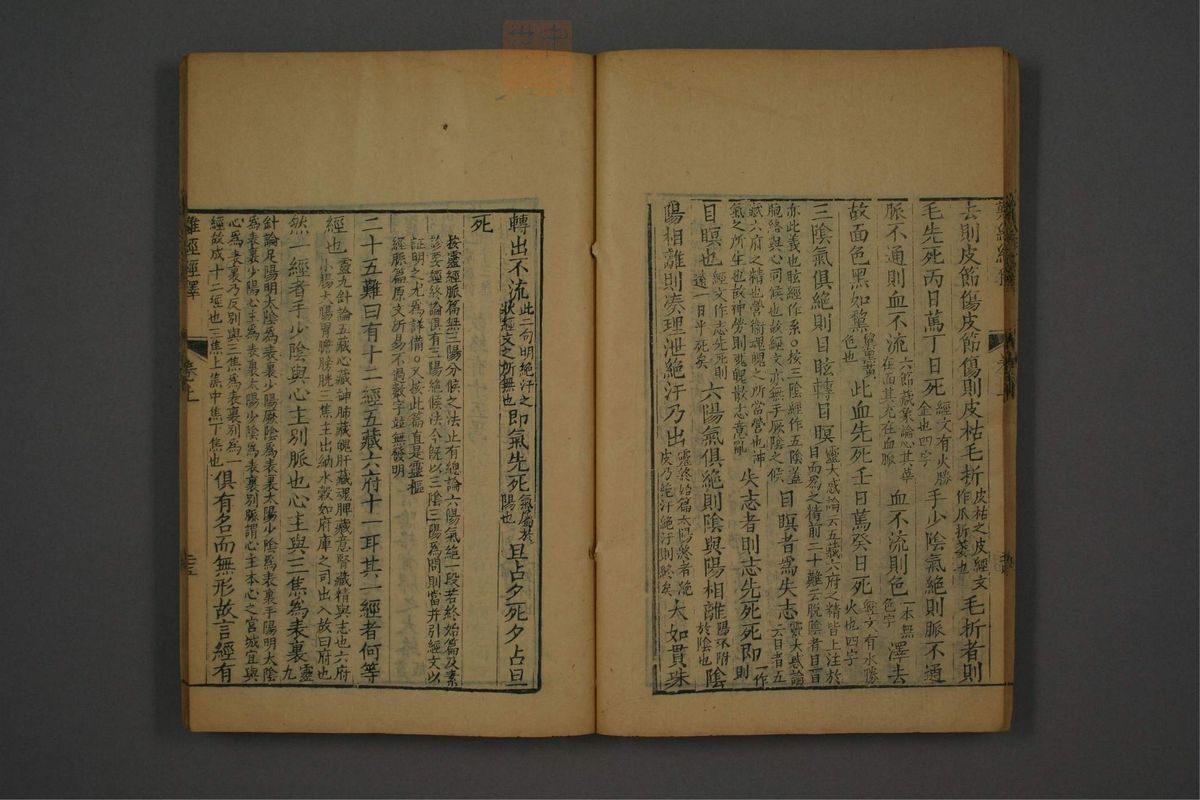 去則皮節傷皮節傷則皮枯毛折皮枯之皮經文作爪折毛折者則
毛先死丙日篤丁日死經文有火勝金也四字手少陰氣絕則脈不通
脈不通則血不流六節藏象論心其華在面其充在血脈血不流則色一本無色字澤去
故面色黑如黧此血先死壬日篤癸日死經文有水勝火也四字
三陰氣俱絕則目眩轉目瞑靈大惑論云五藏六府之精皆上注於目而為之精前二十難云脫陰者目盲
亦此義也眩經作系○按三陰經作五陰蓋胞絡與心同候也故經文亦無手厥陰之候目瞑者為失志靈大惑論云目者五
藏六府之精也營衛魂魄之所當營也神氣之所生也故神勞則魂魄散志意亂失志者則志先死死即一作則
目瞑也經文作志先死則遠一日半死矣六陽氣俱絕則陰與陽相離陽不附於陰也陰
陽相離則湊理泄絕汗乃出靈終始篇太陽終者絕皮乃絕汗絕汗則終矣大如貫珠
轉出不流此二句明絕汗之狀經文之所無也即氣先死氣屬於陽也旦占夕死夕占旦
死
按靈經脈篇無三陽分候之法止有總論六陽氣絕一段若終始篇及素
診要經終論俱有三陽絕候法今既以三陰三陽為問則當并引經文以
証明之尤為詳備○又按此篇直是靈樞
經脈篇原文所易不過數字並無發明
二十五難曰有十二經五藏六府十一耳其一經者何等
經也靈九針論五藏心藏神肺藏魄肝藏魂脾藏意腎藏精與志也六府小腸大腸胃膽膀胱三焦主出納水穀如府庫之司出入故曰府也
然一經者手少陰與心主別脈也心主與三焦為表裏靈九
針論足陽明太陰為表裏少陽厥陰為表裏太陽少陰為表裏手陽明太陰為表裏少陽心主為表裏太陽少陰為表裏別脈謂心主本心之宮城宜與
心為表裏乃反別與三焦為表裏別為一經故成十二經也三焦上焦中焦下焦也俱有名而無形故言經有
難經經釋
卷上